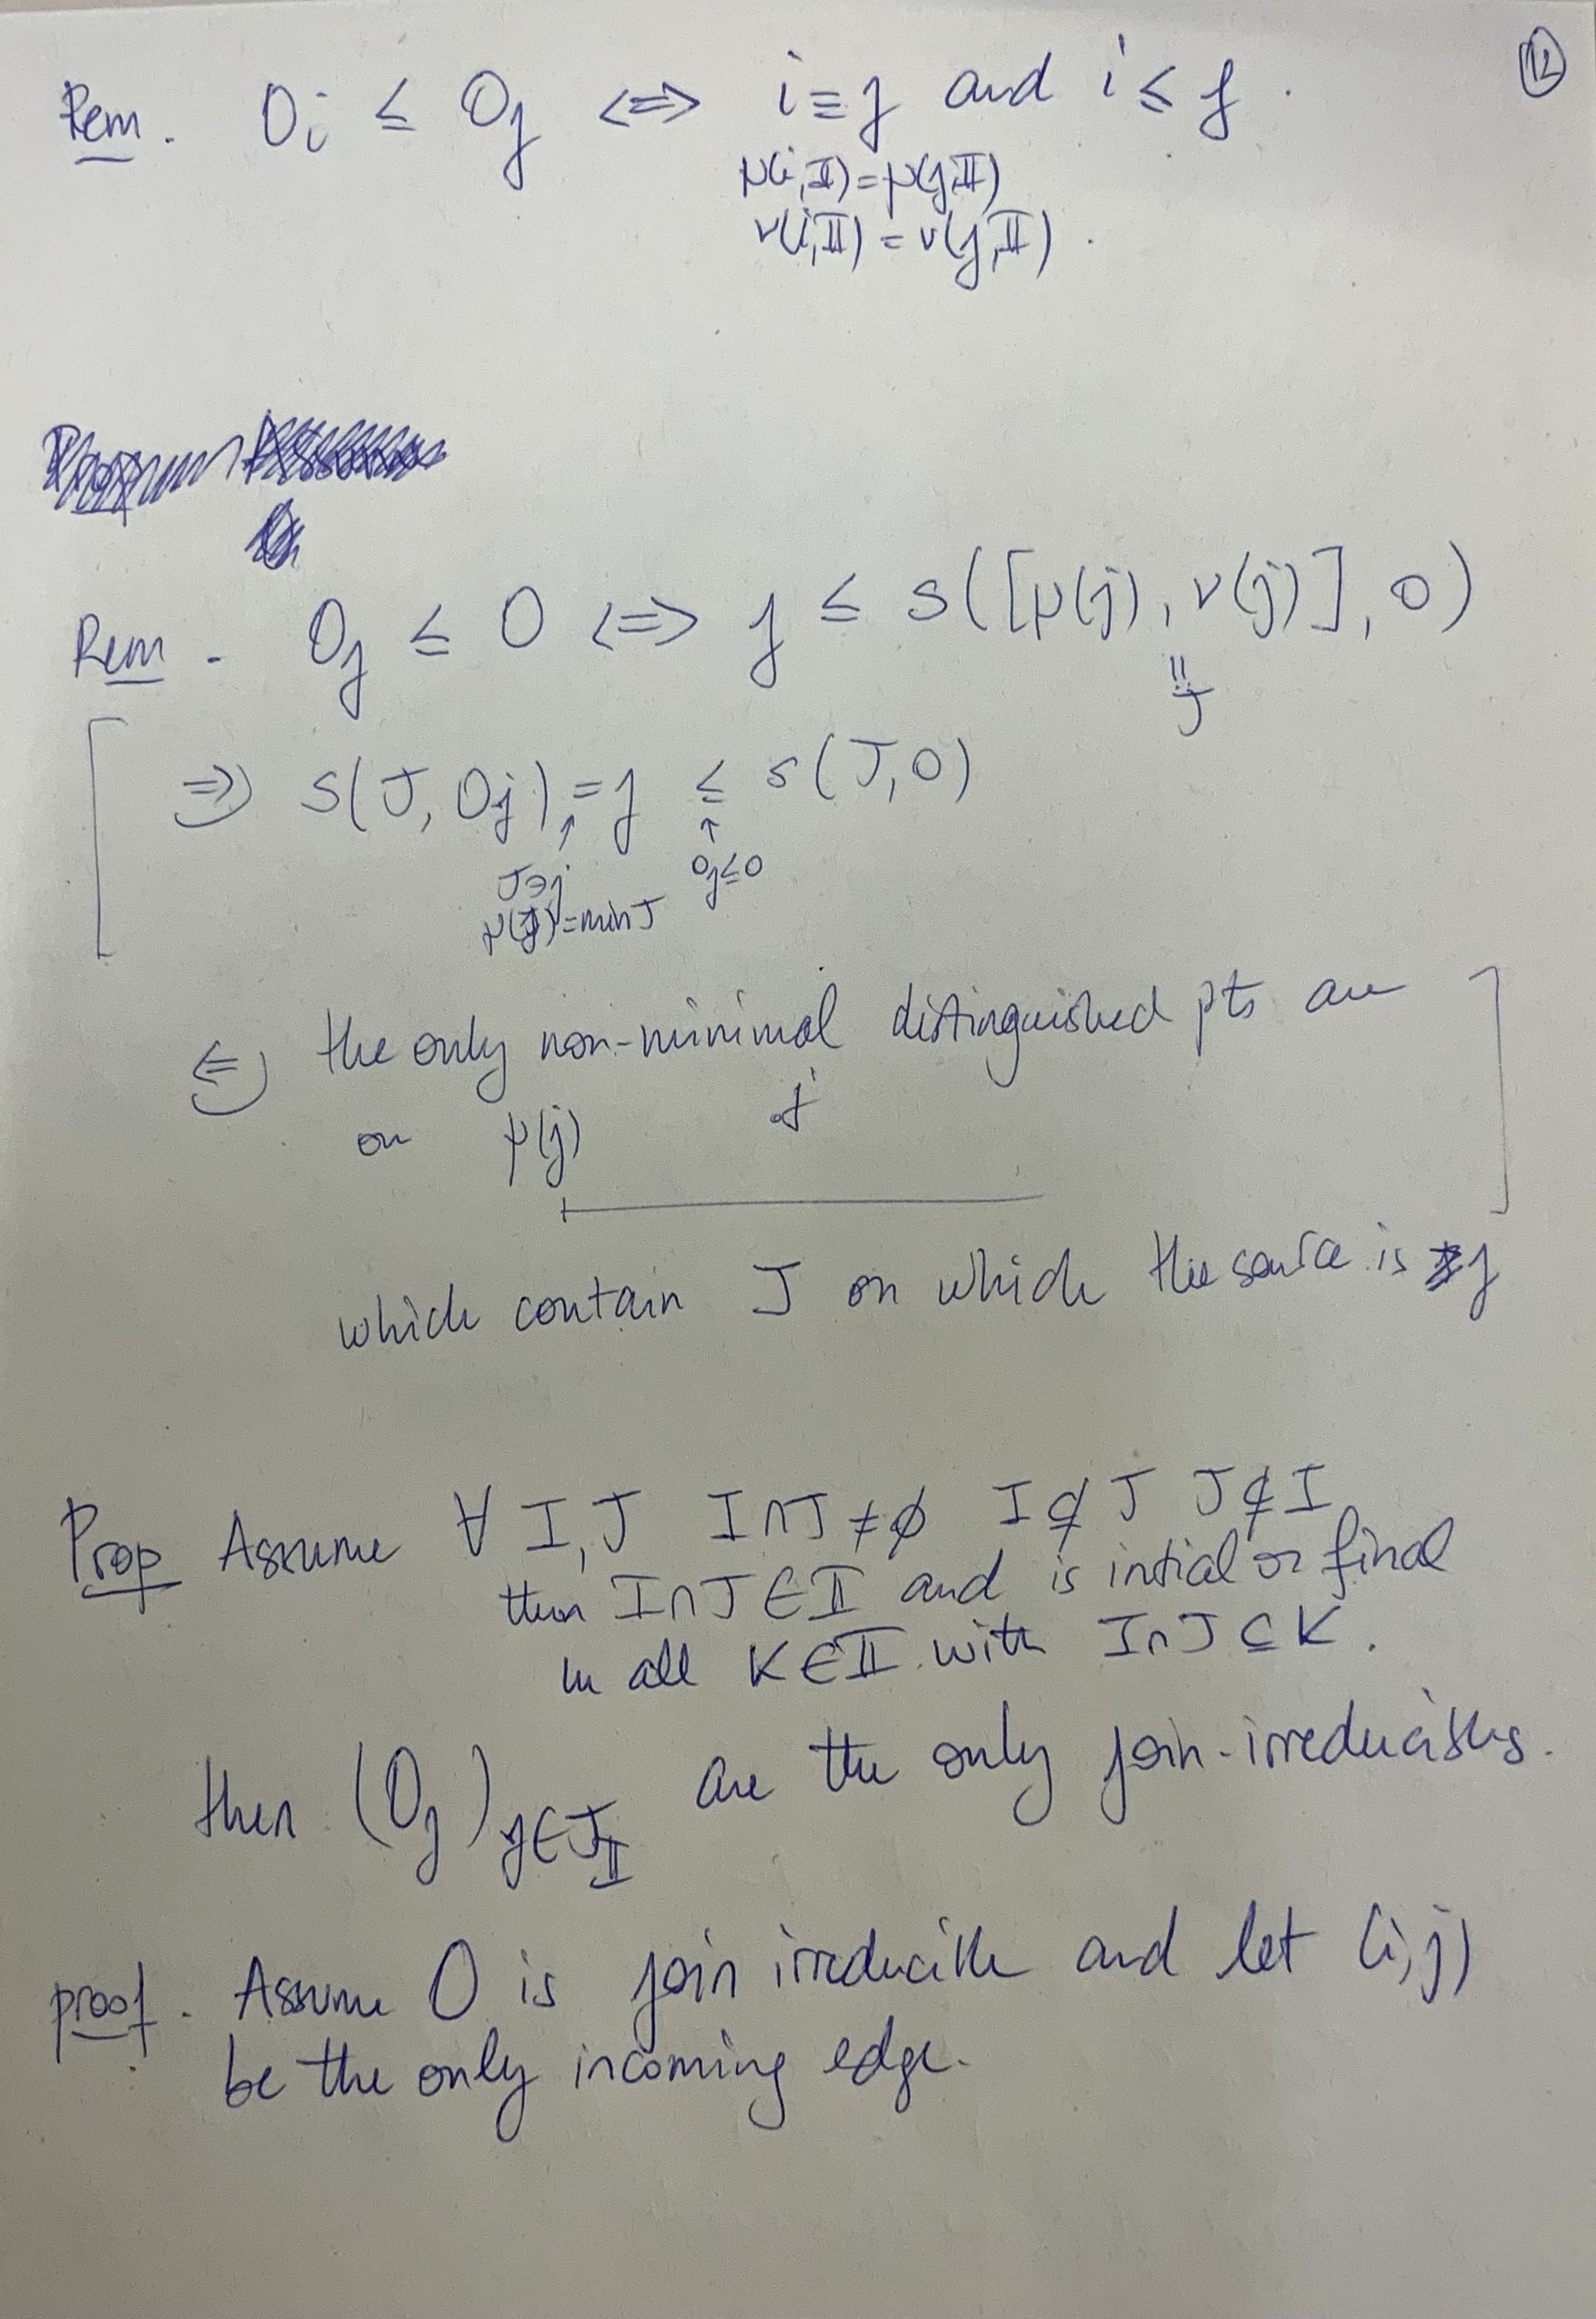 ⑫
Rem. O_i ≤ O_j ⟺ i ≡ j and i ≤ j.
μ(i,𝕀) = μ(j,𝕀)
ν(i,𝕀) = ν(j,𝕀).
Rem. O_j ≤ O ⟺ j ≤ s([μ(j), ν(j)], O)
=: J
⇒) s(J, O_j) = j ≤ s(J, O)
J∋j O_j ≤ O
μ(j) = min J
⇐) the only non-minimal distinguished pts are
on μ(j) j
which contain J on which the source is j
Prop Assume ∀ I, J I∩J ≠ ∅ I ⊄ J J ⊄ I
then I∩J ∈ 𝕀 and is intial or final
in all K ∈ 𝕀 with I∩J ⊆ K.
then (O_j)_{j∈J_𝕀} are the only join-irreducibles.
proof. Assume O is join irreducible and let (i,j)
be the only incoming edge.